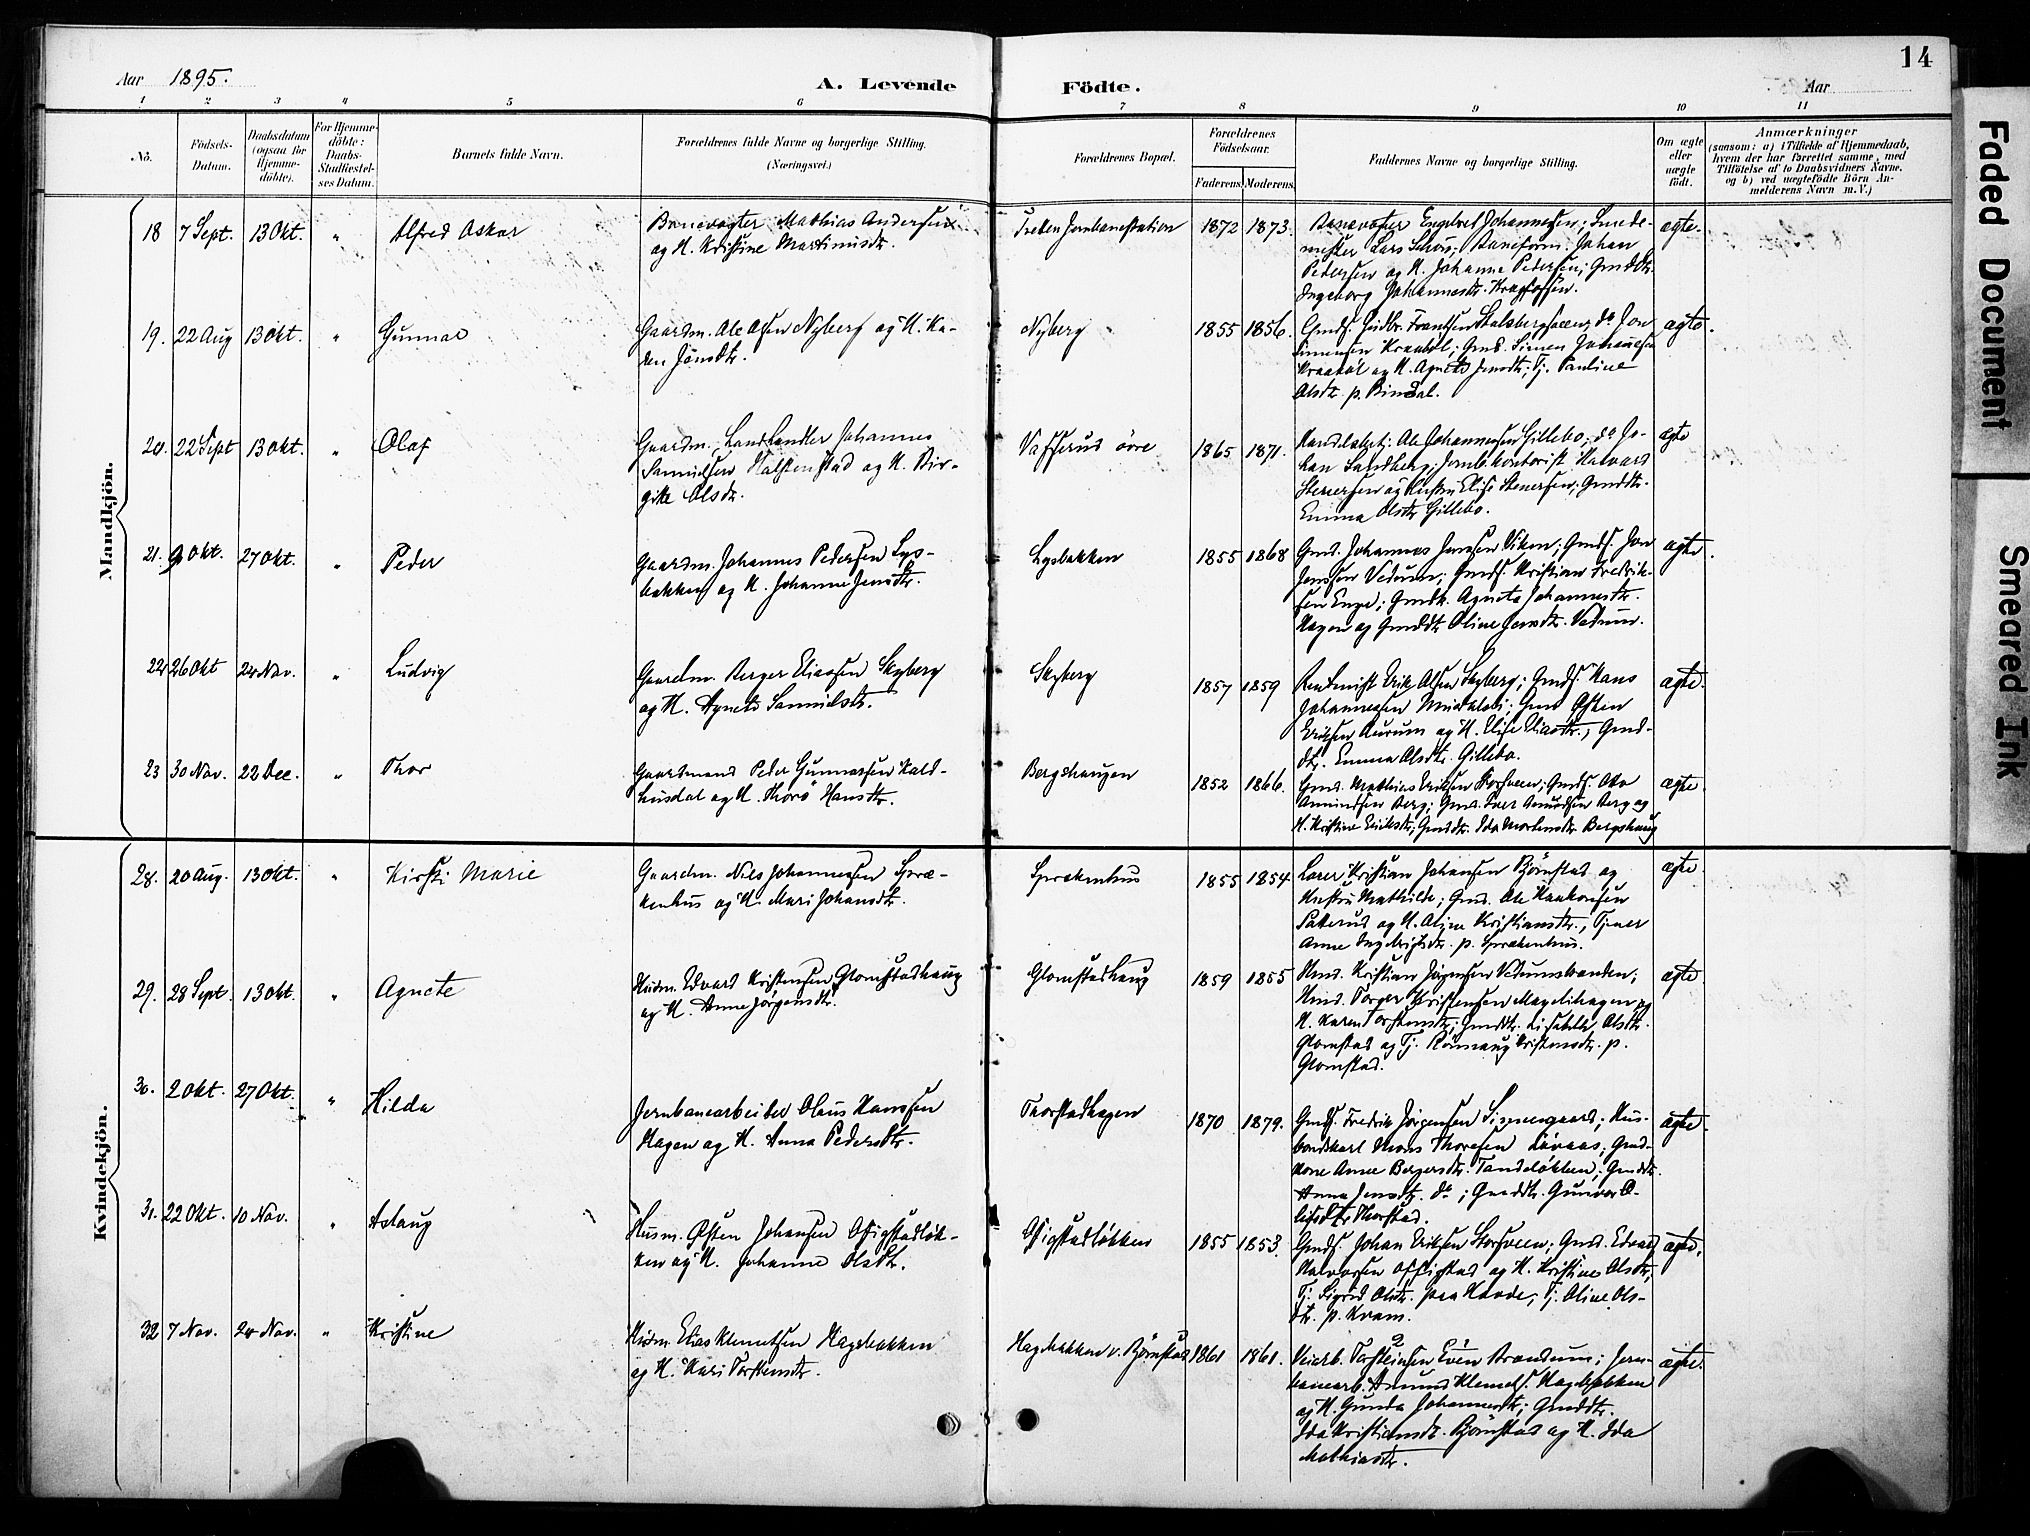 14
Aar 1895.
A. Levende
Födte.
Aar
1 2 3 4 5 6 7 8 9 10 11
No.
Födsels-
Datum.
Daabsdatum
(ogsaa for
Hjemme-
döbte).
For Hjemme-
döbte:
Daabs-
Stadfæstel-
ses Datum.
Barnets fulde Navn.
Forældrenes fulde Navne og borgerlige Stilling.
(Næringsvei.)
Forældrenes Bopæl.
Forældrenes
Födselsaar.
Faderens. Moderens.
Faddernes Navne og borgerlige Stilling.
Om ægte
eller
uægte
födt.
Anmærkninger
(saasom: a) i Tilfælde af Hjemmedaab,
hvem der har forrettet samme, med
Tilföielse af to Daabsvidners Navne,
og b) ved uægtefödte Börn An-
melderens Navn m. V.)
Mandkjön.
18 7 Sept. 13 Okt. " Alfred Oskar
Banevogter Mathias Andersen
og H. Kristine Martinusdtr.
Tretten Jernbanestation 1872 1873.
Banevogter Engebret Johannesen; Smede-
mester Lars ; Baneform. Johan
Pedersen og H. Johanne Pedersen; Gmddtr.
Ingeborg Johannesdtr.
ægte.
19. 22 Aug 13 Okt. " Gunnar
Gaardm. Ole Olsen Nyberg og H. Ka-
ren Jonsdtr.
Nyberg 1855 1856.
Gmds. Gudbr. Frantsen Stalsbergsveen; do Jon
Simensen Kraabøl; Gmd. Simen Johannesen
Kraabøl og H. Agnete Jensdtr; Tj. Pauline
Olsdtr p. Rindal.
ægte.
20. 22 Sept 13 Okt. " Olaf
Gaardm., Landhandler Johannes
Samuelsen Halstenstad og H. Bir-
gitte Olsdtr.
øvre 1865 1871.
Handelsbet: Ole Johannesen Gillebo; do Jo-
han Sandberg; Jernb.kontorist Halvard
Stenersen og Hustru Elise Stenersen; Gmddtr.
Emma Olsdtr Gillebo.
ægte
21. 9 Okt. 27 Okt. " Peder
Gaardm. Johannes Pedersen Lys-
bakken og H. Johanne Jensdtr.
Lysbakken 1855 1868
Gmd. Johannes Jonsen Viken; Gmds. Jon
Jenssen Vedum; Gmds. Kristian Fredrik-
sen Enge; Gmdk. Agnete Johannesdtr.
Hagen og Gmddtr Oline Jensdtr. Vedum.
ægte.
22 26 Okt 24 Nov. " Ludvig
Gaardm. Berger Eliassen Skyberg
og H. Agnete Samuelsdtr.
Skyberg 1857 1859
Rentenist Erik Olsen Skyberg; Gmds. Hans
Johannesen ; Gmd Østen
Eriksen Aurum og H. Elise Eliasdtr., Gmd-
dtr. Emma Olsdtr. Gillebo.
ægte.
23 30 Nov. 22 Dec. " Thor
Gaardmand Peder Gunnarsen Kald-
husdal og H. Thora Hansdtr.
Bergshaugen 1852 1866.
Gmd. Mathias Eriksen Storsveen; Gmds. Ole
Amundsen Berg; Gmd. Iver Amundsen Berg og
H. Kristine Eriksdtr; Gmddtr. Ida Mortensdtr Bergshaug
ægte
Kvindekjön.
28. 20 Aug. 13 Okt. " Kirsti Marie
Gaardm. Nils Johannesen Spræ-
kenhus og H. Mari Johansdtr.
Sprækenhus 1855 1854
Lærer Kristian Johansen Bjørnstad og
Hustru Mathilde; Gmd. Ole Haakonsen
og H. Kristiansdtr., Tjener
Anne Ingebrigtsdtr. p. Sprækenhus.
ægte
29. 28 Sept. 13 Okt. " Agnete
Husm. Edvard Kristensen Glomstadhaug
og H. Anne Jørgensdtr.
Glomstadhaug 1859 1855
Hmd. Kristian Jørgensen Vedumstranden;
Hmd. Torger Kristensen Magelihagen og
H. Karen Torstensdtr; Gmddtr. Lisabeth Olsdtr.
Glomstad og Tj. Rønnaug Kristensdtr. p.
Glomstad.
ægte
30. 2 Okt. 27 Okt. " Hilda
Jernbanearbeider Olaus Hanssen
Hagen og H. Anna Pedersdtr.
Thorstadhagen 1870 1879.
Gmds. Fredrik Jørgensen ; Hus-
bondskarl Mons Thoresen ; Gmd.
kone Anne Bergersdtr. Tandeløkken; Gmddtr.
Anna Jensdtr. do; Gmddtr. Gunvor O-
lufsdtr Thorstad.
ægte.
31. 22 Okt. 10 Nov. " Aslaug
Husm. Østen Johansen Ofsigstadløk-
ken og H. Johanne Olsdtr.
Ofsigstadløkken 1855 1853.
Gmds. Johan Eriksen Storsveen; Gmd. Edvard
Halvorsen Offigstad og H. Kristine Olsdtr,
Tj. Sigrid Olsdtr. paa Havde; Tj. Oline Ols-
dtr. p. Kram.
ægte.
32 7 Nov. 24 Nov. " Kristine
Husm. Elias Klemetsen Hagebakken
og H. Kari Torstensdtr.
Hagebakken v. Bjørnstad 1861 1861.
Veiarb. Torsteinsen Even Brændum; Jern-
banearb. Amund Klemets. Hagebakken
og H. Gunda Johannesdtr; Gmddtr.
Ida Kristiansdtr. Bjørnstad og H. Ida
Mathiasdtr.
ægte.
Faded Document
Smeared Ink